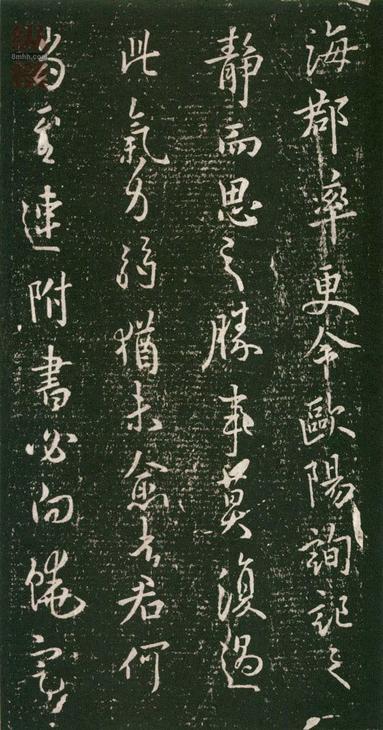 海郡率更令歐陽詢記之
靜而思之勝事莫復過
此氣力弱猶未愈吉君何
當至速附書必向饒定
8mhh.com